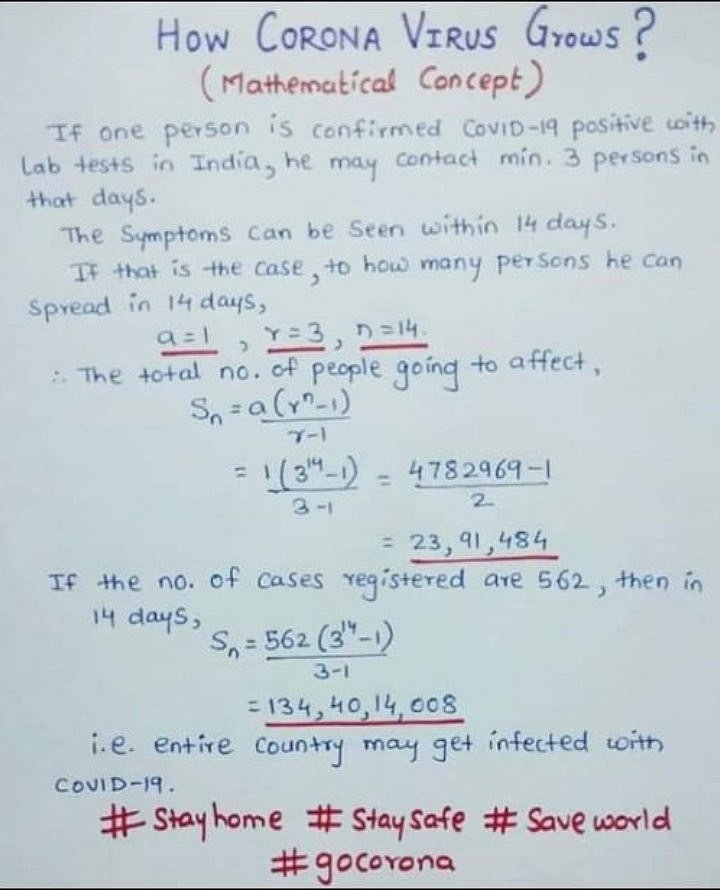 How CORONA VIRUS Grows?
(Mathematical Concept)
If one person is confirmed COVID-19 positive with
Lab tests in India, he may contact min. 3 persons in
that days.
The Symptoms can be seen within 14 days.
If that is the case, to how many persons he can
spread in 14 days,
a=1, r=3, n=14.
∴ The total no. of people going to affect,
Sₙ = a(rⁿ-1)
r-1
= 1(3¹⁴-1) = 4782969-1
3-1 2
= 23,91,484
If the no. of cases registered are 562, then in
14 days,
Sₙ = 562(3¹⁴-1)
3-1
= 134,40,14,008
i.e. entire country may get infected with
COVID-19.
# Stayhome # Staysafe # Save world
#gocorona